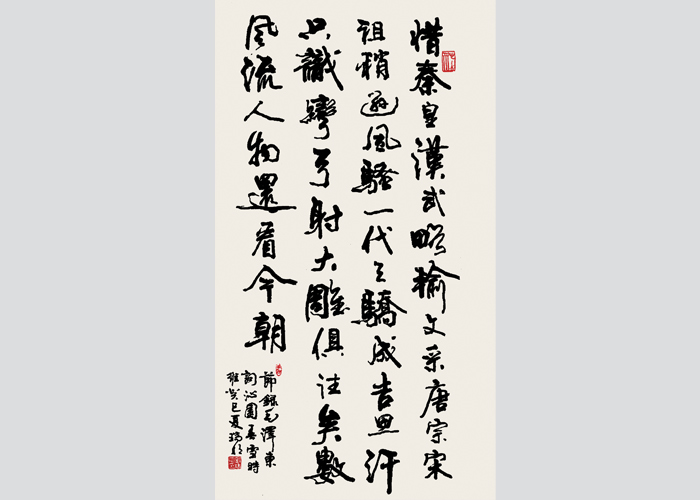 惜秦皇漢武略輸文采唐宗宋
祖稍遜風騷一代天驕成吉思汗
只識彎弓射大雕俱往矣數
風流人物還看今朝
節錄毛澤東
詞沁園春雪時
維癸巳夏瑞